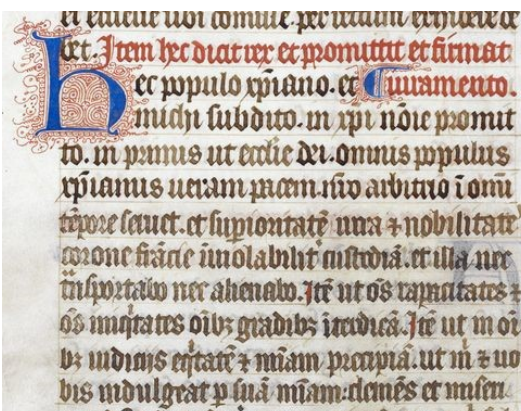 bet. Item hec dicit rex et promittit et firmat
hec populo xpiano. et iuramento.
michi subdito. in xpi noie promit
to. in primis ut ecclie dei. omnis populus
xpianus ueram pacem. nro arbitrio i omi
tepore seruet. et superioritate iura ⁊ nobilitate
corone francie inuiolabilit custodia. et illa nec
trasportabo nec alienabo. Ite ut os rapacitates ⁊
os iniqtates oibz gradibz iterdica. Ite ut in oi
bz iudiciis eqtate ⁊ miam precipia. ut m ⁊ uo
bis indulgeat p sua miam: clemes et miseri